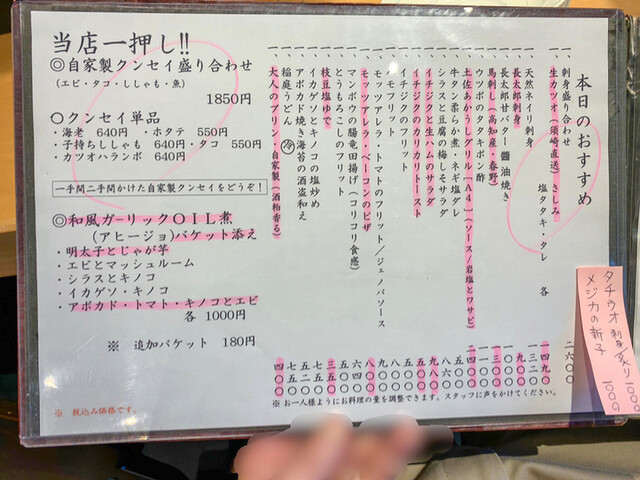 本日のおすすめ
一、刺身盛り合わせ 二六〇〇
一、生カツオ(須崎直送)さしみ
塩タタキ・タレ 各
一、天然ネイリ刺身
一、長太郎刺身
一、長太郎バター醤油焼き
一、馬刺し(高知産・春野)
一、ウツボのタタキポン酢
一、土佐あかうしグリル【A4】(ソース/岩塩とワサビ)
一、牛タン柔らか煮・ネギ塩ダレ
一、シラスと豆腐の梅しそサラダ
一、イチジクと生ハムのサラダ
一、イチジクのカリカリトースト
一、イチジクのフリット
一、ハモフリット
一、モッツアレラ・トマトのフリット/ジェノバソース
一、モッツアレラ・ベーコンのピザ
一、マンボウの腸竜田揚げ(コリコリ食感)
一、とうもろこしのフリット
一、枝豆塩ゆで
一、イカゲソとキノコの塩炒め
一、アボカド焼き海苔の酒盗和え
一、稲庭うどん 冷
一、大人のプリン・自家製(酒粕香る)
※ お一人様ようにお料理の量を調整できます。スタッフに声をかけてください。
タチウオ 刺身/炙り 1000
メジカの新子 1000
当店一押し!!
◎自家製クンセイ盛り合わせ
(エビ・タコ・ししゃも・魚)
1850円
〇クンセイ単品
・海老 640円 ・ホタテ 550円
・子持ちししゃも 640円・タコ 550円
・カツオハランボ 640円
一手間二手間かけた自家製クンセイをどうぞ!
◎和風ガーリックOIL煮
(アヒージョ)バケット添え
・明太子とじゃが芋
・エビとマッシュルーム
・シラスとキノコ
・イカゲソ・キノコ
・アボカド・トマト・キノコとエビ
各 1000円
※ 追加バケット 180円
※ 税込み価格です。